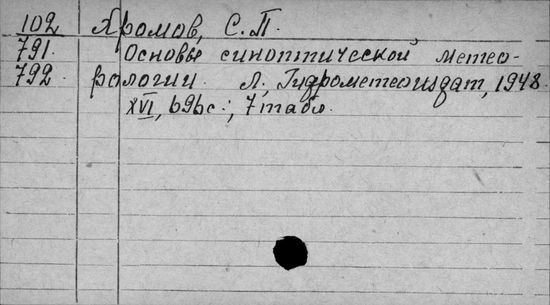 102 Хромов, С.П.
791. Основы синоптической метео-
792. рологии. Л., Гидрометеоиздат, 1948.
XVI, 696с.; 7 табл.